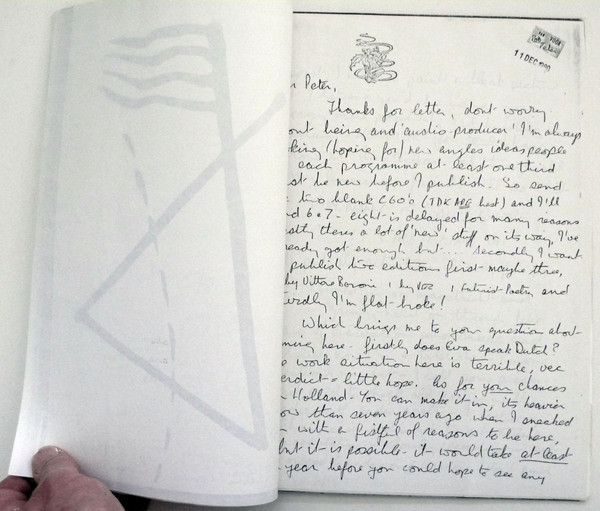 11 DEC 1980
Peter,
Thanks for letter, dont worry
being and 'audio-producer' I'm always
(hoping for) new angles ideas people
each programme at least one third
be new before I publish. So send
two blank C60's (TDK best) and I'll
6 & 7 - eight is delayed for many reasons
theres a lot of 'new' stuff on its way, I've
got enough but.... secondly I want
publish two editions first - maybe three,
by Vittore Baroni, 1 by VEC 1 Futurist Poetry, and
I'm flat-broke!
Which brings me to your question about
here. firstly does Eva speak Dutch?
work situation here is terrible, vec
= little hope. As for your chances
Holland - You can make it in, its heavier
than seven years ago when I sneaked
with a fistful of reasons to be here,
but it is possible - it would take at least
year before you could hope to see any